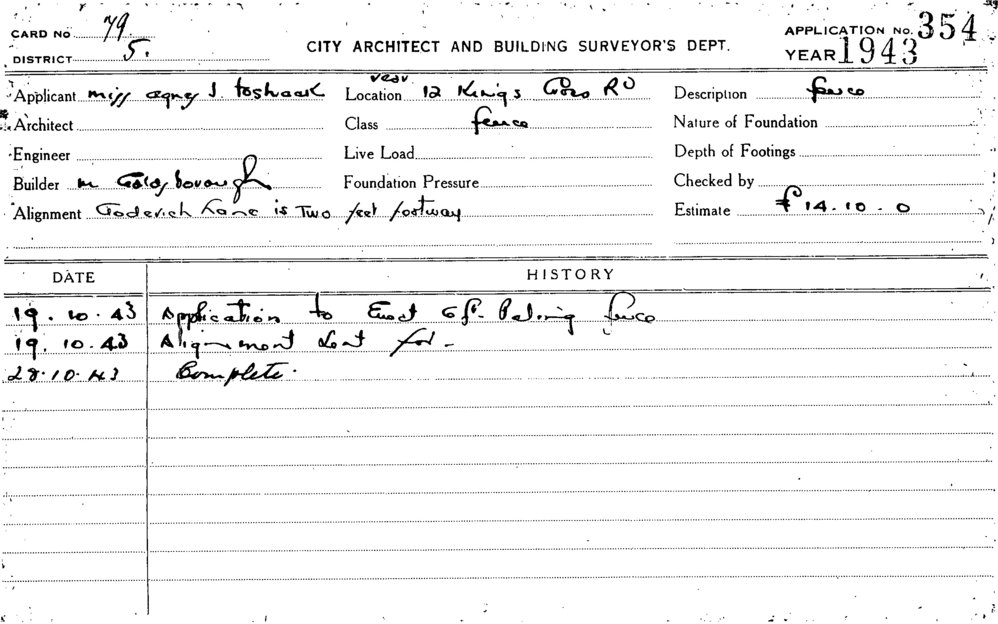 CARD No 79.
DISTRICT 5.
CITY ARCHITECT AND BUILDING SURVEYOR'S DEPT.
APPLICATION No. 354
YEAR 1943
Applicant Miss Agnes J. Toshack
Architect
Engineer
Builder M Goldsborough
Alignment Goderich Lane is Two feet footway
rear
Location 12 Kings Cross Rd
Class fence
Live Load
Foundation Pressure
Description fence
Nature of Foundation
Depth of Footings
Checked by
Estimate £14.10.0
DATE HISTORY
19.10.43 Application to Erect 6ft. Paling fence
19.10.43 Alignment Sent for -
28.10.43 Complete.